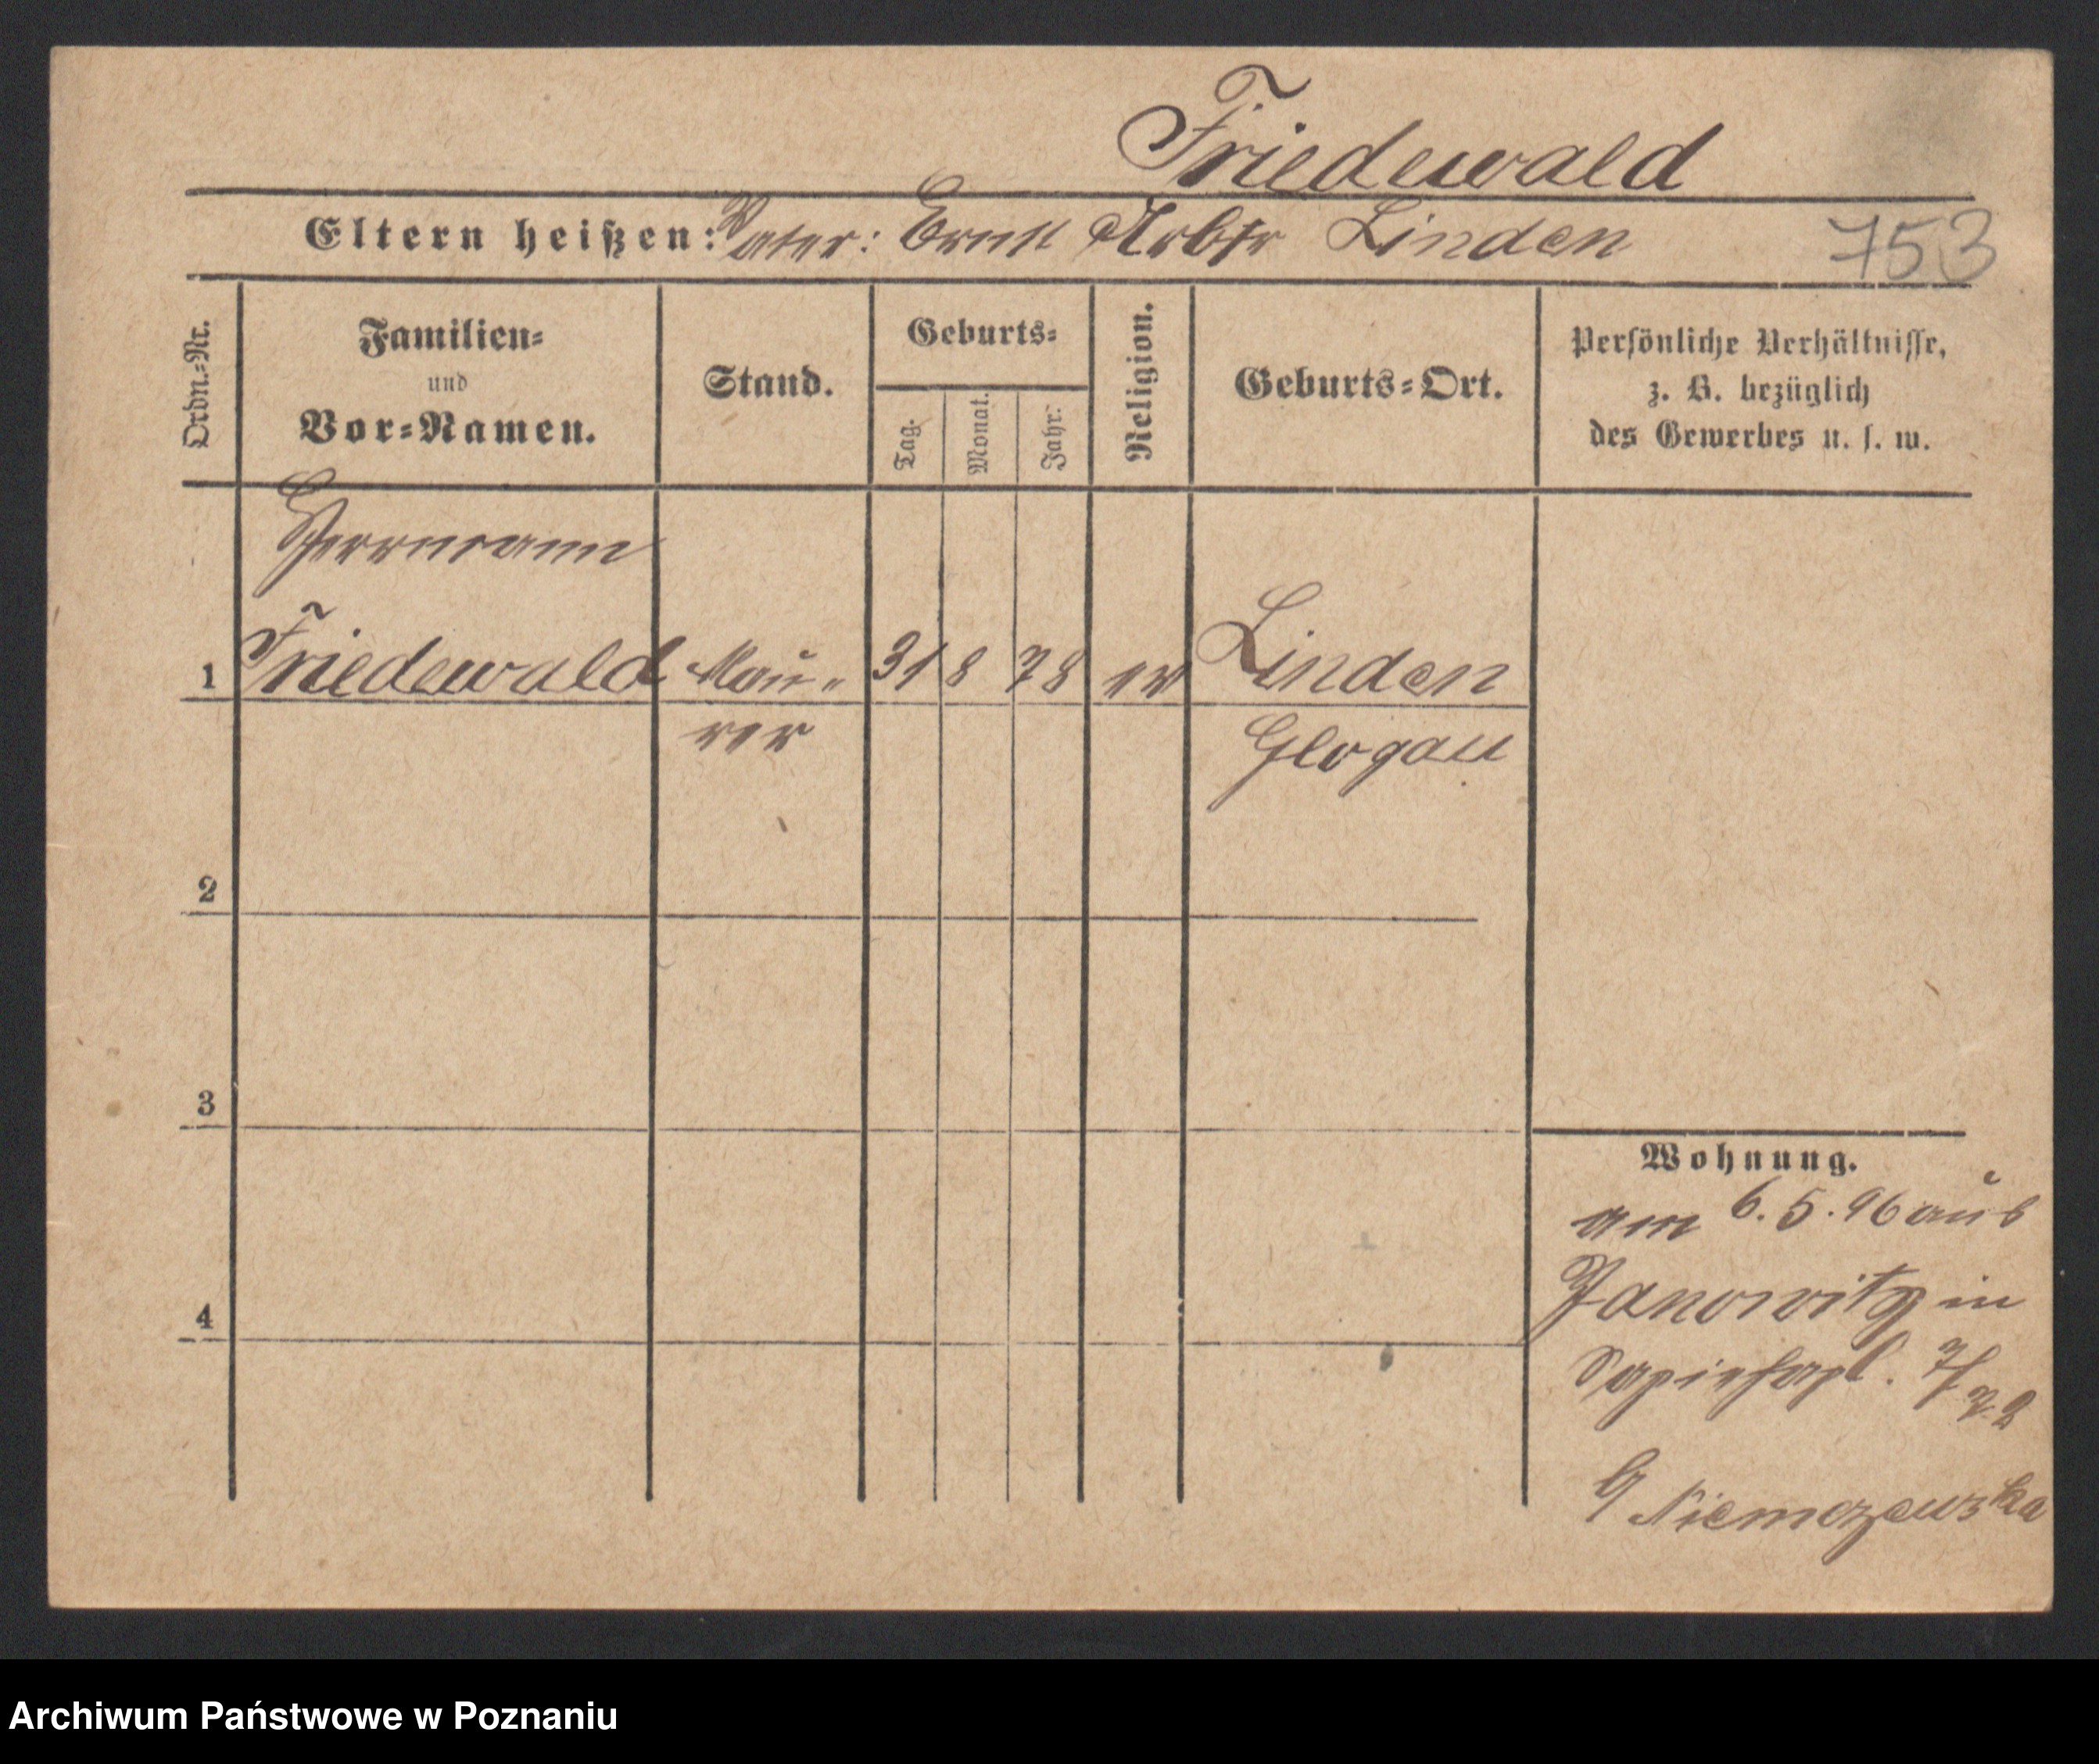 Friedewald
Eltern heißen: Vater: Ernst Arbtr Linden 753
Ordn.-Nr.
Familien-
und
Vor-Namen.
Stand.
Geburts-
Tag.
Monat.
Jahr.
Religion.
Geburts-Ort.
Persönliche Verhältnisse,
z. B. bezüglich
des Gewerbes u. s. w.
Herrmann
1 Friedewald Mau- 31 8 78 ev Linden
rer Glogau
2
3
4
Wohnung.
am 6.5.96 aus
Janowitz in
Sapiehapl. 7/
b/ Niemczewska
Archiwum Państwowe w Poznaniu